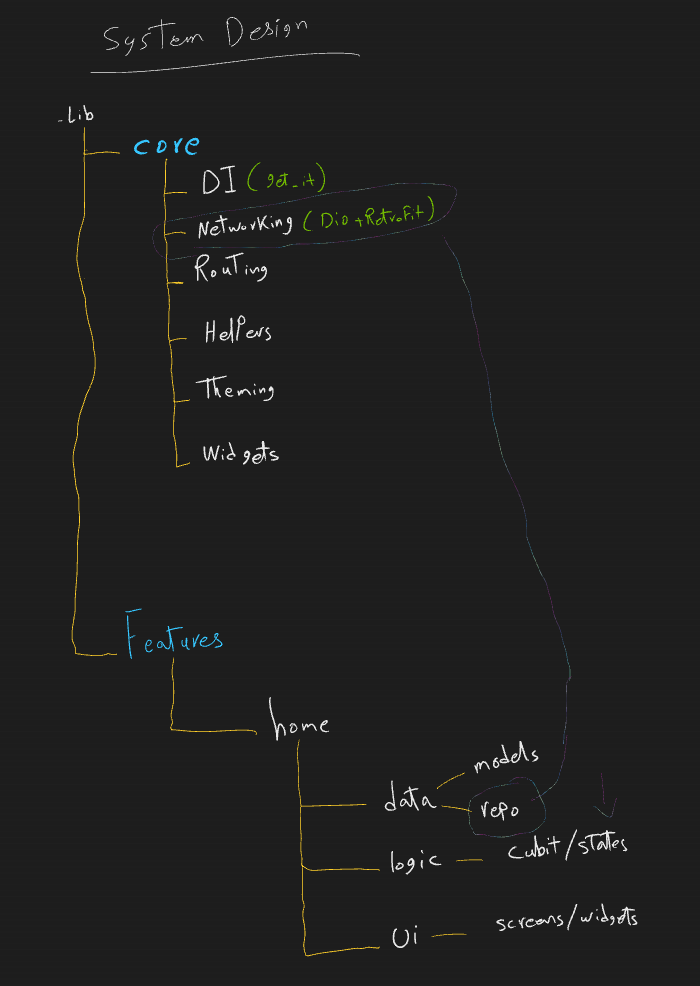 System Design
-Lib
core
DI (get_it)
Networking (Dio+RetroFit)
Routing
Helpers
Theming
Widgets
Features
home
models
data
repo
logic
cubit/states
Ui
screans/widgets